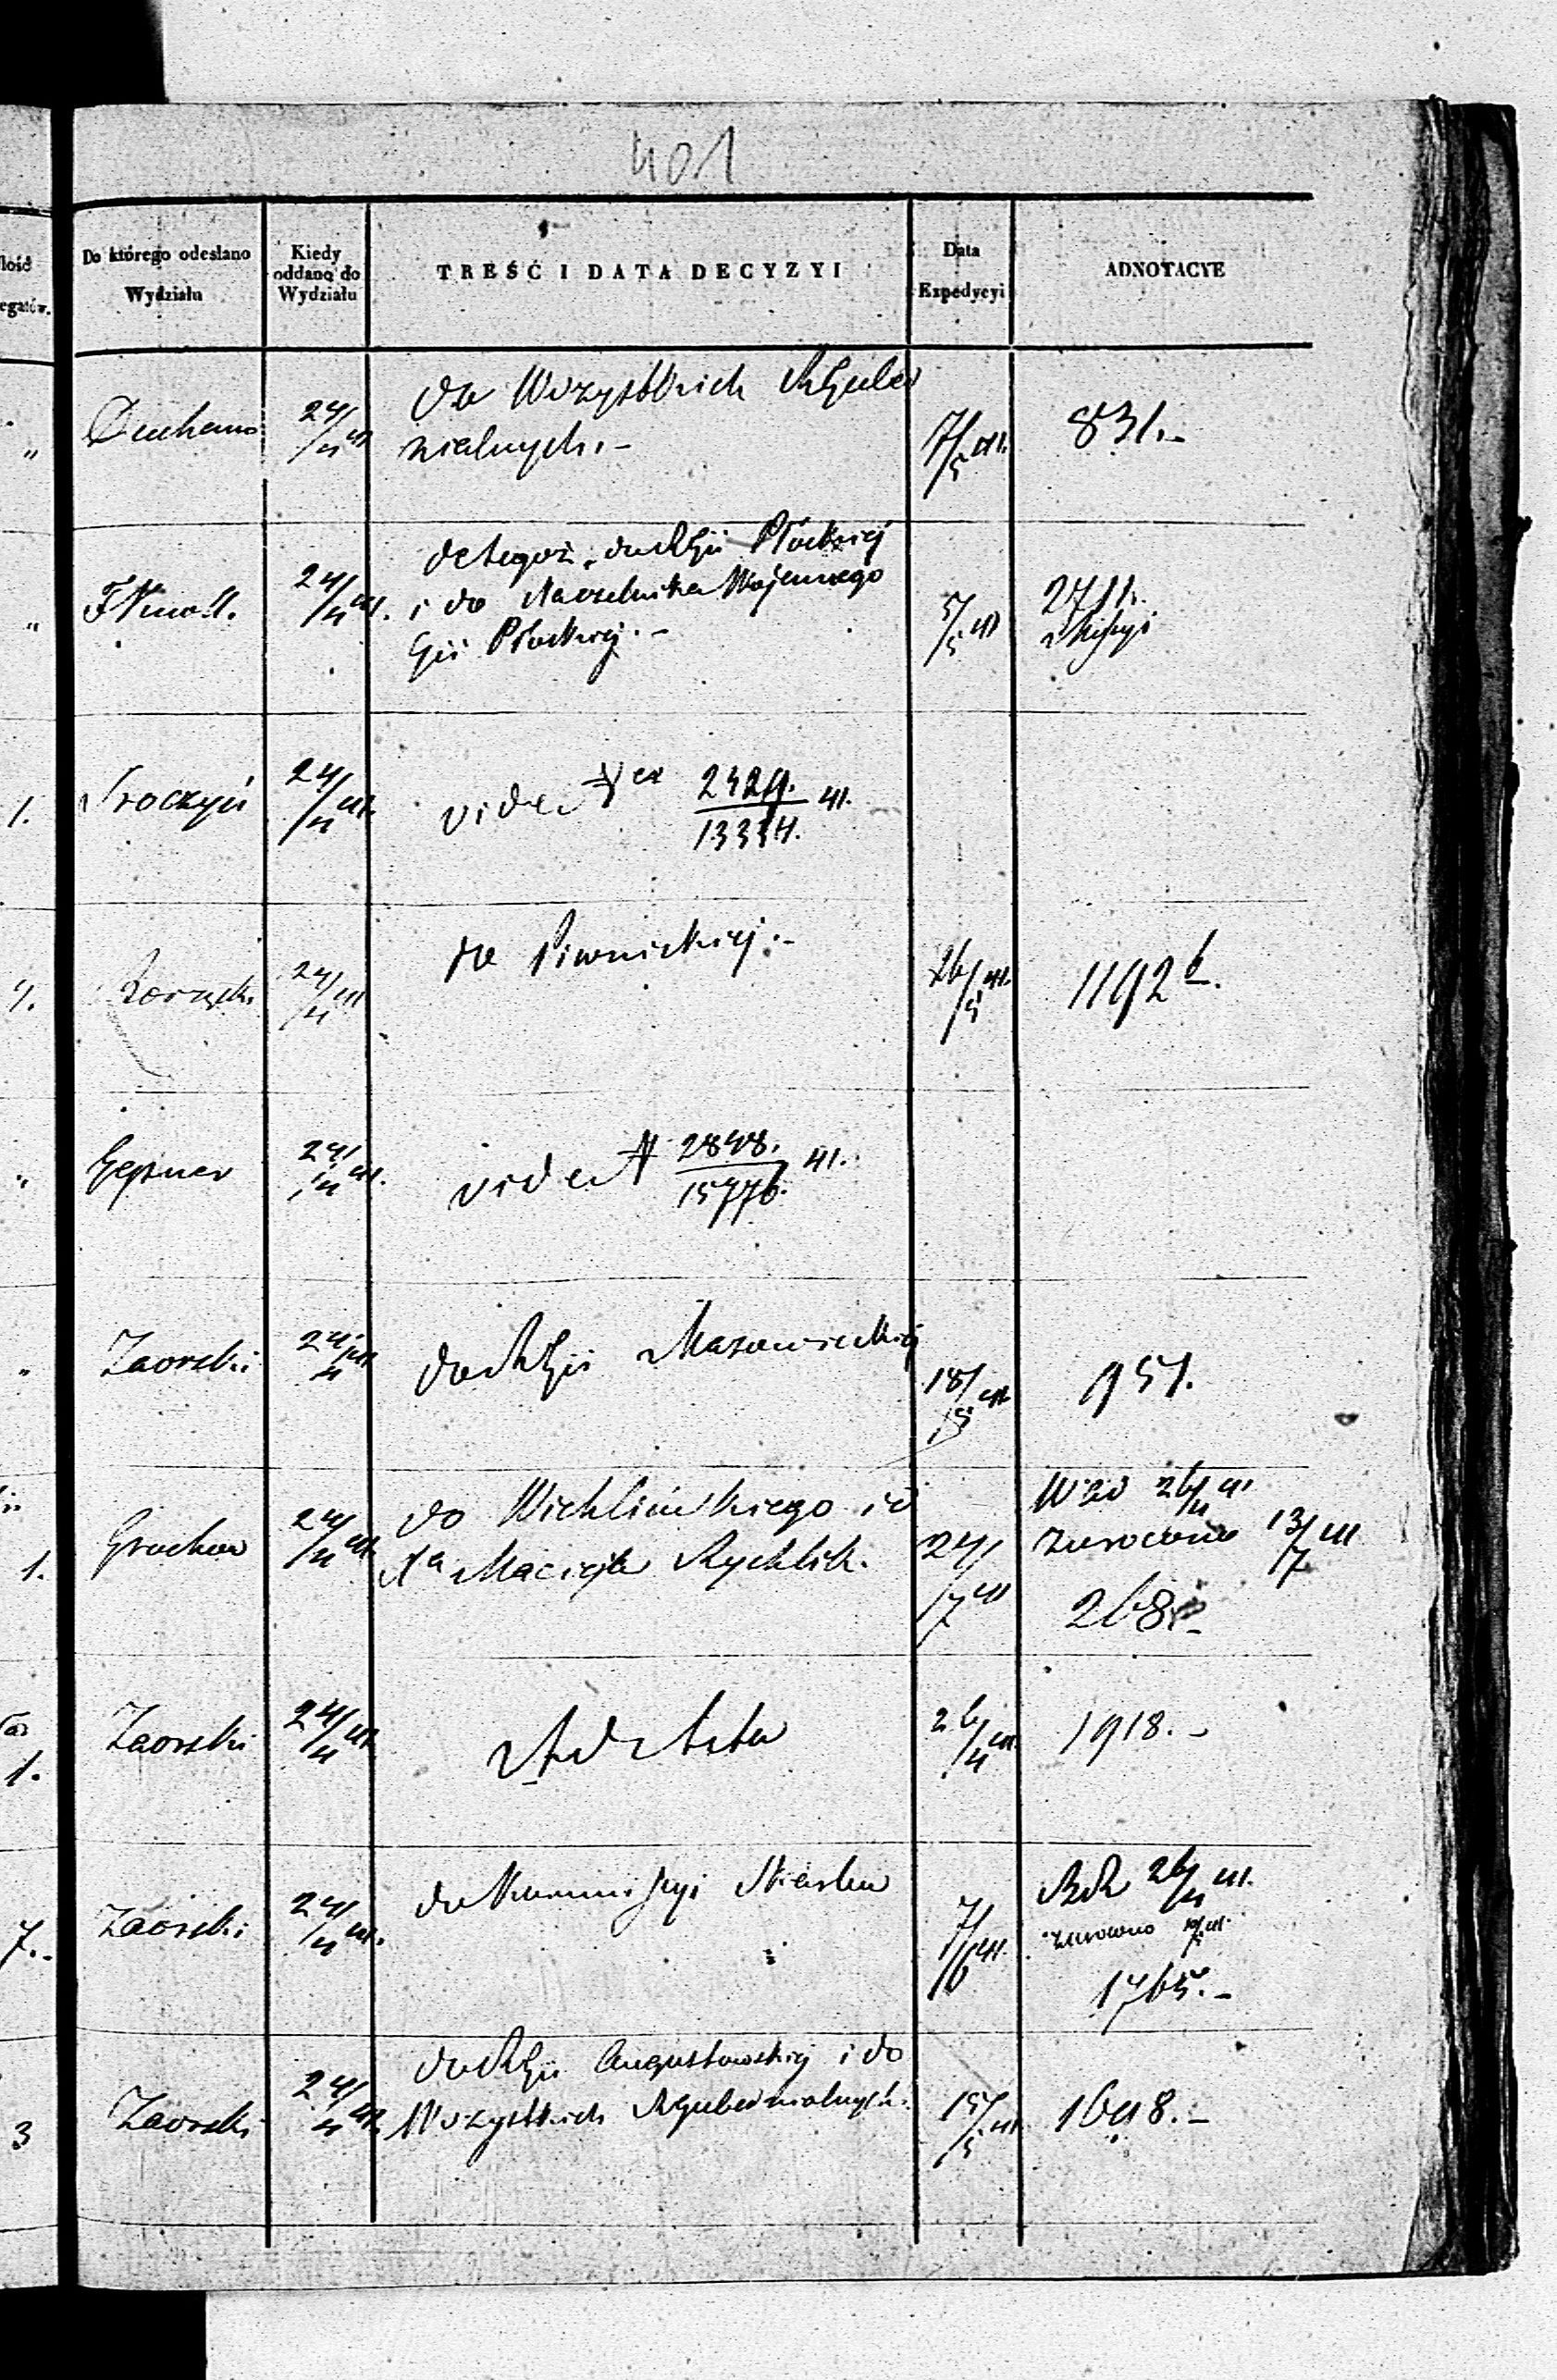 401
Do którego odesłano Wydziału
Kiedy oddano do Wydziału
TREŚĆ I DATA DECYZYI
Data Expedycyi
ADNOTACYE
24/4 41
do Wszystkich RGuber
nialnych.-
7/5 41.
831.-
24/4 41.
do RGu Płockiej
i do Naczelnika Wojennego
Gu Płockiej.-
5/5 41
2711.
1.
24/4 41.
vide
13334. 41.
4.
24/4 41
do Piwnickiej.-
26/5 41.
11926.
„
Gepner
24/4 41.
vide N 2848./15776. 41.
„
Zaorski
24/4 41
do RGu Mazowieckiej
18/5 41
951.
1.
Grochow
24/4 41.
do Wichlińskiego i d
Macieja Rychlik.
24/7 41
26/4 41
zwrócono 13/7 41
268.-
1.
Zaorski
24/4 41.
Ad Acta
26/4 41.
1918.-
7.-
Zaorski
24/4 41.
do Kommissyi Skarbu
7/6 41.
26/4 41.
zwrócono
1765.-
3
Zaorski
24/4 41.
do RGu Augustowskiej i do
Wszystkich RGubernialnych.
15/5 41
1648.-